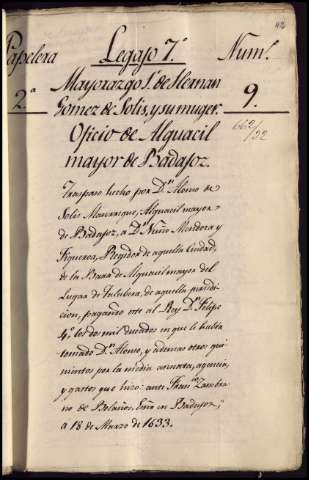 42
Papelera Legajo 7.º Num.º
2.ª 9.
Mayorazgo 1.º de Hernan
Gomez de Solis, y su muger.
Oficio de Alguacil
mayor de Badajoz.
662/22
Traspaso hecho por D.n Alonso de
Solis Manrrique, Alguacil mayor
de Badajoz, a D.n Nuño Mendoza y
Figueroa, Regidor de aquella Ciudad,
de la Bara de Alguacil mayor del
Lugar de Talubera, de aquella jurisdi-
cion, pagando este al Rey D.n Felipe
4.º los dos mil ducados en que le havia
tomado D.n Alonso, y ademas otros qui-
nientos por la media annata, agencia,
y gastos que hizo: ante Fran.co Zambra-
no de Bolaños, Ess.no en Badajoz,
a 18 de Marzo de 1633.